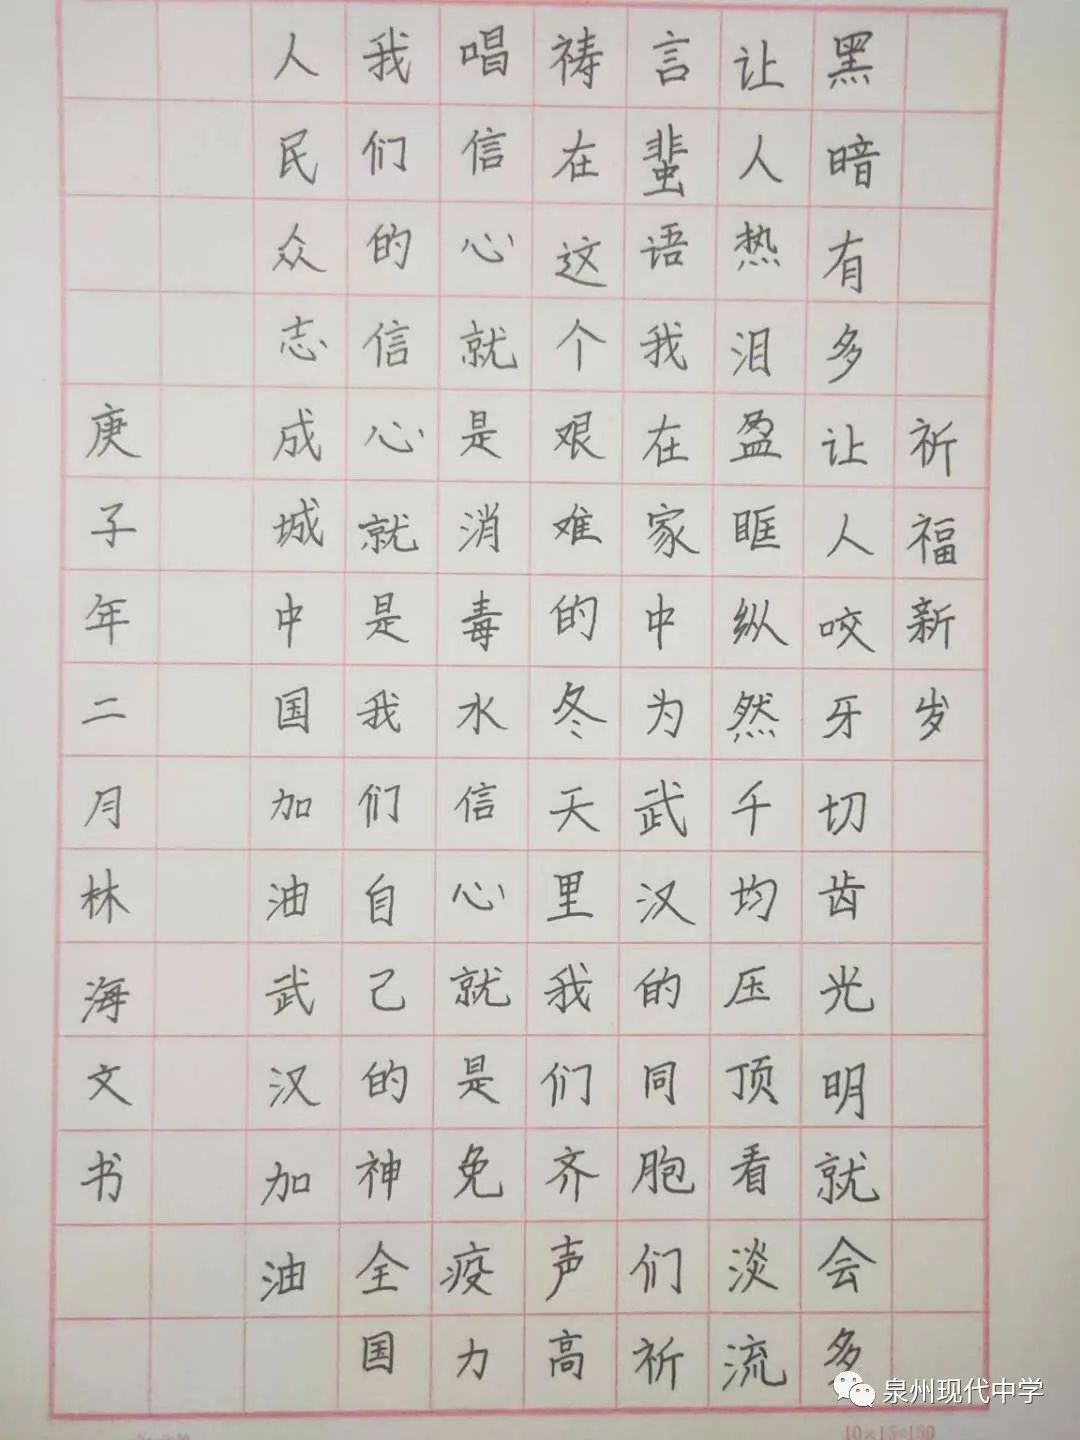 祈福新岁
黑暗有多让人咬牙切齿光明就会多
让人热泪盈眶纵然千均压顶看淡流
言蜚语我在家中为武汉的同胞们祈
祷在这个艰难的冬天里我们齐声高
唱信心就是消毒水信心就是免疫力
我们的信心就是我们自己的神全国
人民众志成城中国加油武汉加油
庚子年二月林海文书
泉州现代中学